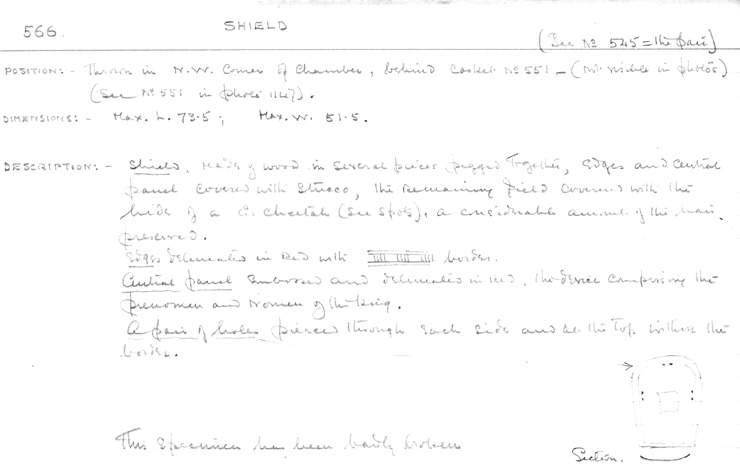 566.
SHIELD
(See No 545 = the pair)
POSITION:- Thrown in N.W. Corner of Chamber, behind Casket No 551 - (Not visible in photos)
(See No 551 in photo 1147).
DIMENSIONS:- Max. L. 73.5; Max. W. 51.5.
DESCRIPTION:- Shield, made of wood in several pieces pegged together, Edges and Central
panel covered with Stucco, the remaining field covered with the
hide of a cheetah (see spots), a considerable amount of the hair
preserved.
Edges delineated in Red with border.
Central panel Embossed and delineated in Red, the device comprising the
prenomen and Nomen of the King.
A pair of holes pierced through each side and at the Top within the
border.
This Specimen has been badly broken
Section.